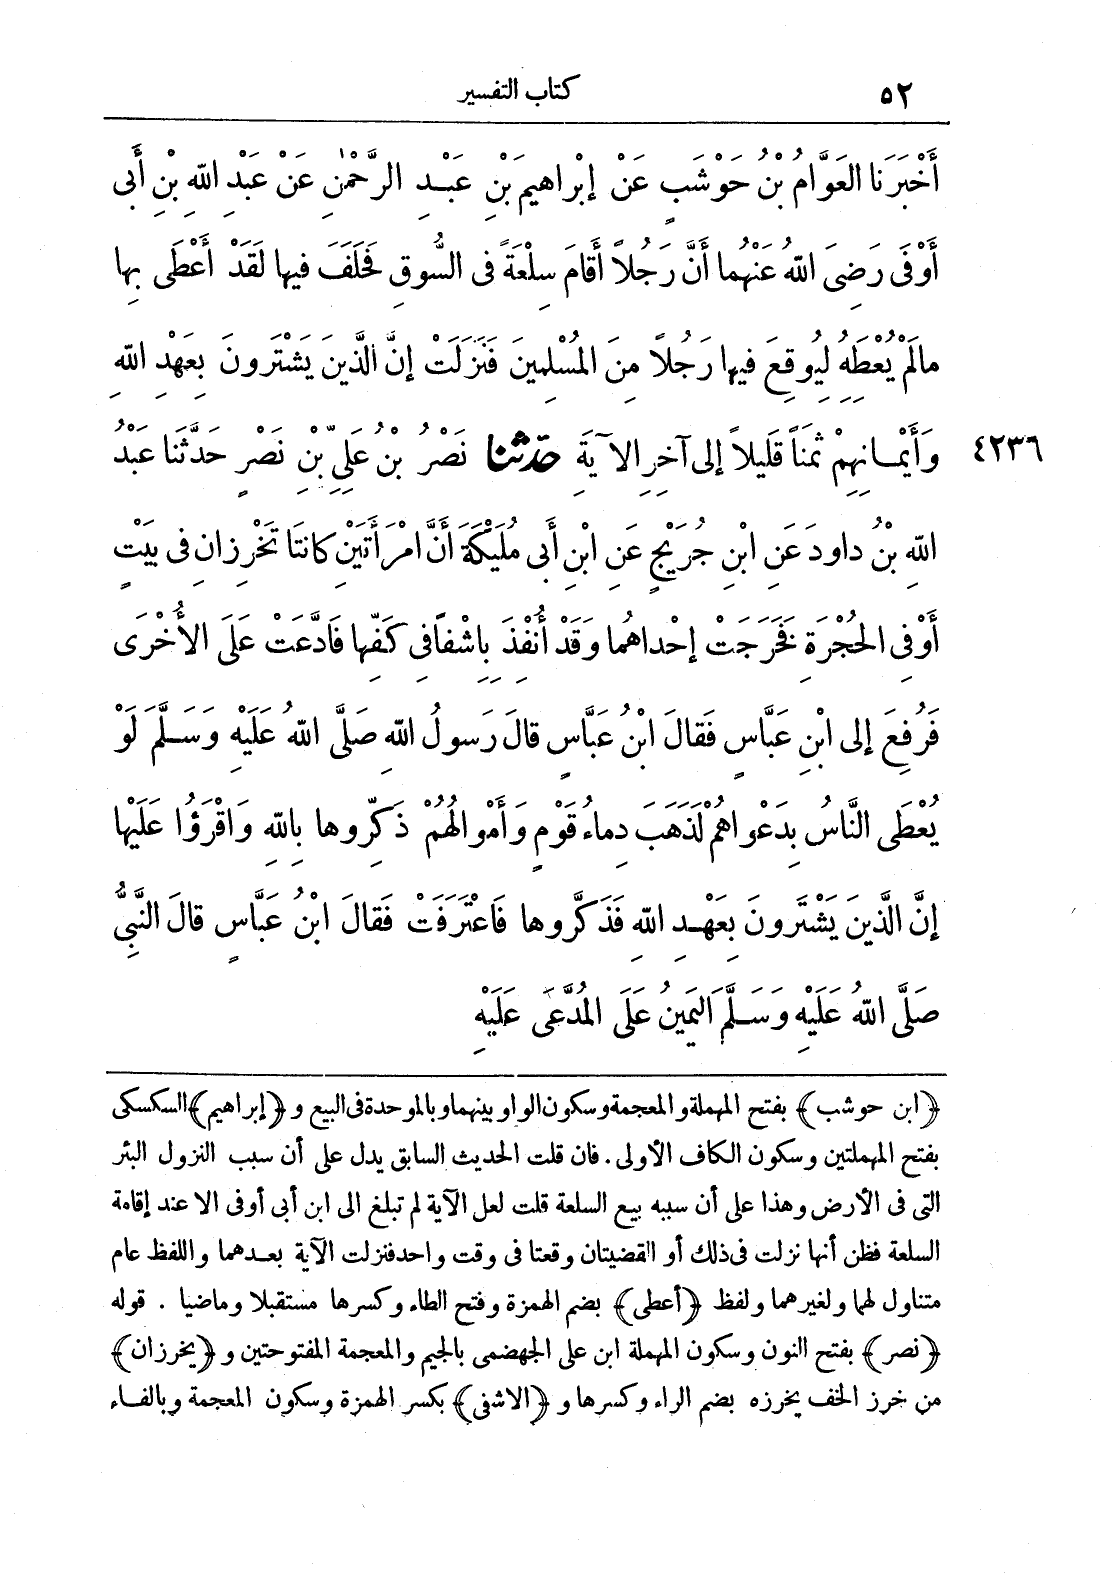 ٥٢
كتاب التفسير
أَخْبَرَنَا العَوَّامُ بْنُ حَوْشَبٍ عَنْ إِبْراهِيمَ بْنِ عَبْدِ الرَّحْمٰنِ عَنْ عَبْدِ اللهِ بْنِ أَبِى
أَوْفَى رَضِىَ اللهُ عَنْهُما أَنَّ رَجُلاً أَقامَ سِلْعَةً فى السُّوقِ فَحَلَفَ فيها لَقَدْ أَعْطَى بِها
مالَمْ يُعْطَهُ لِيُوقِعَ فيها رَجُلاً مِنَ المُسْلِمينَ فَنَزَلَتْ إِنَّ الَّذينَ يَشْتَرونَ بِعَهْدِ اللهِ
وَأَيْمانِهِمْ ثَمَناً قَليلاً إلى آخرِ الآيَةِ حدّثنا نَصْرُ بْنُ عَلِىِّ بْنِ نَصْرٍ حَدَّثَنا عَبْدُ
٤٢٣٦
اللهِ بْنُ داودَ عَنِ ابْنِ جُرَيْجٍ عَنِ ابْنِ أَبى مُلَيْكَةَ أَنَّ امْرَأَتَيْنِ كانَتا تَخْرِزانِ فى بَيْتٍ
أَوْ فى الحُجْرَةِ فَخَرَجَتْ إحْداهُما وَقَدْ أُنْفِذَ بِاِشْفاً فى كَفِّها فَادَّعَتْ عَلَى الأُخْرَى
فَرُفِعَ إلى ابْنِ عَبَّاسٍ فَقالَ ابْنُ عَبَّاسٍ قالَ رَسولُ اللهِ صَلَّى اللهُ عَلَيْهِ وَسَلَّمَ لَوْ
يُعْطَى النَّاسُ بِدَعْواهُمْ لَذَهَبَ دِماءُ قَوْمٍ وَأَمْوالُهُمْ ذَكِّروها بِاللهِ وَاقْرَؤُا عَلَيْها
إِنَّ الَّذينَ يَشْتَرونَ بِعَهْدِ اللهِ فَذَكَّروها فَاعْتَرَفَتْ فَقالَ ابْنُ عَبَّاسٍ قالَ النَّبِىُّ
صَلَّى اللهُ عَلَيْهِ وَسَلَّمَ اليَمينُ عَلَى المُدَّعَى عَلَيْهِ
﴿ابن حوشب﴾ بفتح المهملة والمعجمة وسكون الواو بينهما وبالموحدة فى البيع و﴿إبراهيم﴾ السكسكى
بفتح المهملتين وسكون الكاف الأولى. فان قلت الحديث السابق يدل على أن سبب النزول البئر
التى فى الأرض وهذا على أن سببه بيع السلعة قلت لعل الآية لم تبلغ الى ابن أبى أوفى الا عند إقامة
السلعة فظن أنها نزلت فى ذلك أو القضيتان وقعتا فى وقت واحد فنزلت الآية بعدهما واللفظ عام
متناول لهما ولغيرهما ولفظ ﴿أعطى﴾ بضم الهمزة وفتح الطاء وكسرها مستقبلا وماضيا . قوله
﴿نصر﴾ بفتح النون وسكون المهملة ابن على الجهضمى بالجيم والمعجمة المفتوحتين و﴿يخرزان﴾
من خرز الخف يخرزه بضم الراء وكسرها و﴿الاشفى﴾ بكسر الهمزة وسكون المعجمة وبالفاء